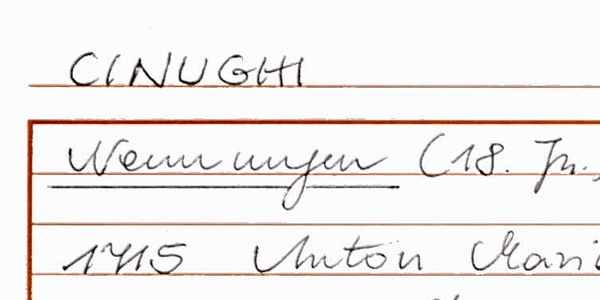 CINUGHI
Nennungen (18. Jh.,
1715 Anton Mari